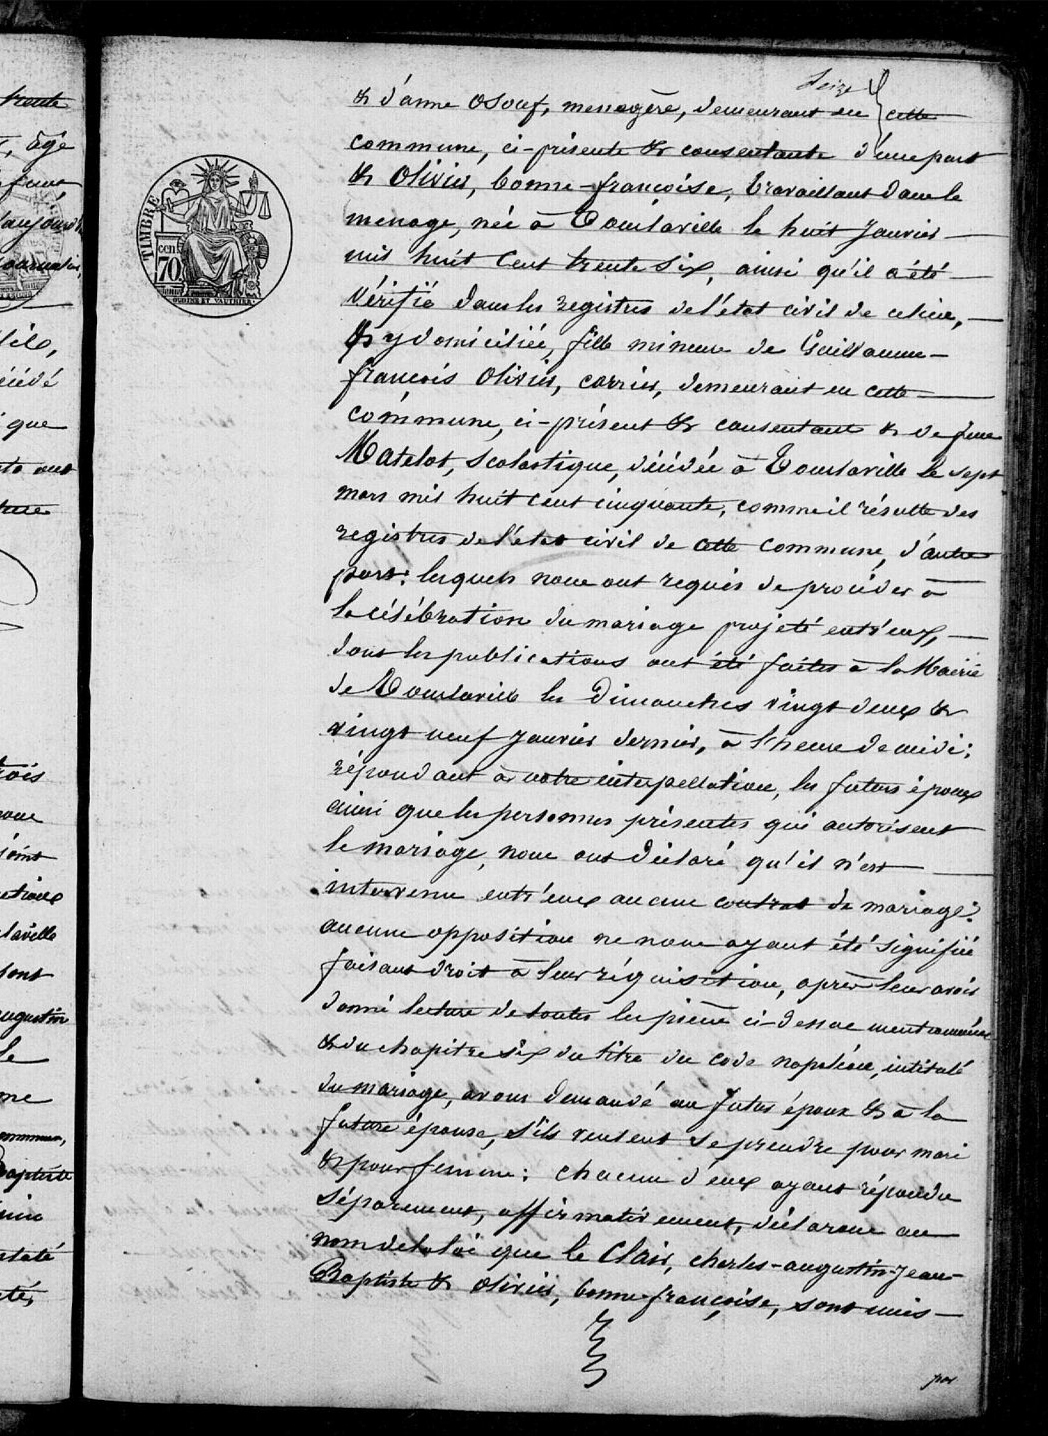 Seize
& d'anne osouf, menagère, demeurant en cette
commune, ci-présente & consentante d'une part
& Olivier, bonne-françoise, travaillant dans le
menage, née à Tourlaville le huit Janvier
mil huit cent trente six, ainsi qu'il a été
vérifié dans les registres de l'état civil de ce lieu,
& y domiciliée, fille mineure de Guillaume-
françois Olivier, carrier, demeurant en cette
commune, ci-présent & consentant & de feue
Matelot, scolastique, décédée à Tourlaville le sept
mars mil huit cent cinquante, comme il résulte des
registres de l'état civil de cette commune, d'autre
part: lesquels nous ont requis de procéder à
la célébration du mariage projeté entr'eux,
dont les publications ont été faites à la Mairie
de Tourlaville les Dimanches vingt deux &
vingt neuf Janvier dernier, à l'heure de midi;
répondant à notre interpellation, les futurs époux
ainsi que les personnes présentes qui autorisent
le mariage, nous ont déclaré qu'il n'est
intervenu entr'eux aucun contrat de mariage:
aucune opposition ne nous ayant été signifiée
faisant droit à leur réquisition, après leur avoir
donné lecture de toutes les pièces ci-dessus mentionnées
& du chapitre six du titre du code napoléon, intitulé
du mariage, avons demandé au futur époux & à la
future épouse, s'ils veulent se prendre pour mari
& pour femme: chacun d'eux ayant répondu
séparement, affirmativement, déclarons au
nom de la loi que le Clair, charles-augustin-Jean-
Baptiste & Olivier, bonne françoise, sont unis
par
TIMBRE
cen
70
trois
que
Baptiste